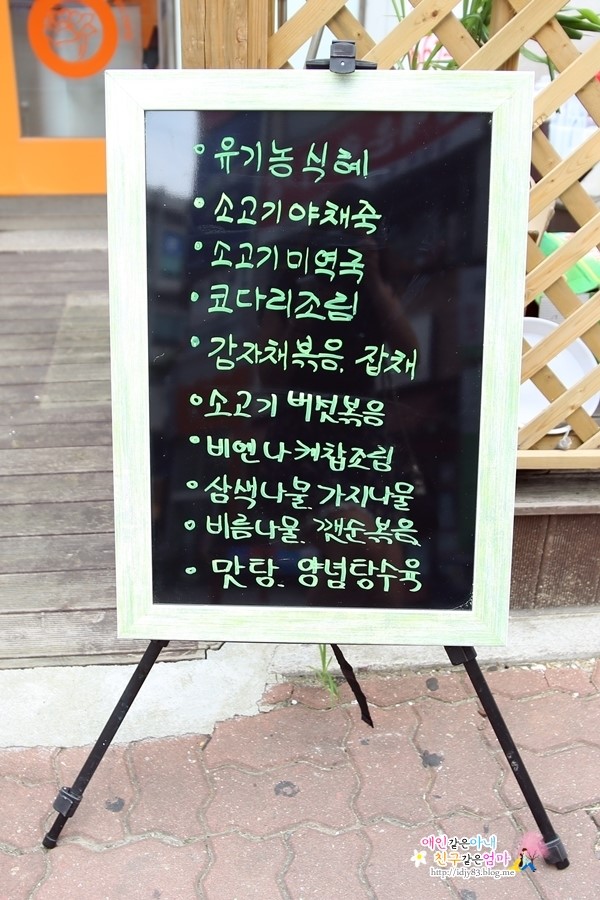 • 유기농 식혜
• 소고기 야채죽
• 소고기 미역국
• 코다리조림
• 감자채볶음. 잡채
• 소고기 버섯볶음
• 비엔나 케찹조림
• 삼색나물. 가지나물
• 비름나물. 깻순볶음
• 맛탕. 양념탕수육
애인같은아내
친구같은엄마
http://idjy83.blog.me